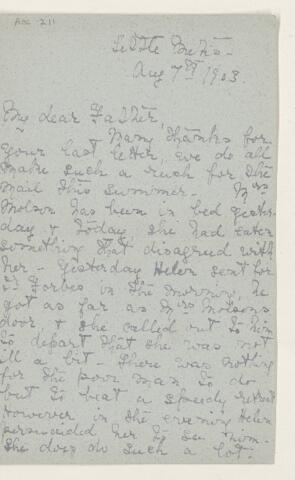 Acc 211
Little Metis -
Aug 7th 1903.
My dear Father,
Many thanks for
your last letter, we do all
make such a rush for the
mail this summer - Mrs
Molson has been in bed yester-
day & today she had eaten
something that disagreed with
her - Yesterday Helen sent for
Dr Forbes in the morning, he
got as far as Mrs Molsons
door & she called out to him
to depart that she was not
ill a bit - There was nothing
for the poor man to do
but to beat a speedy retreat
However in the evening Helen
persuaded her to see him.
She does do such a lot.